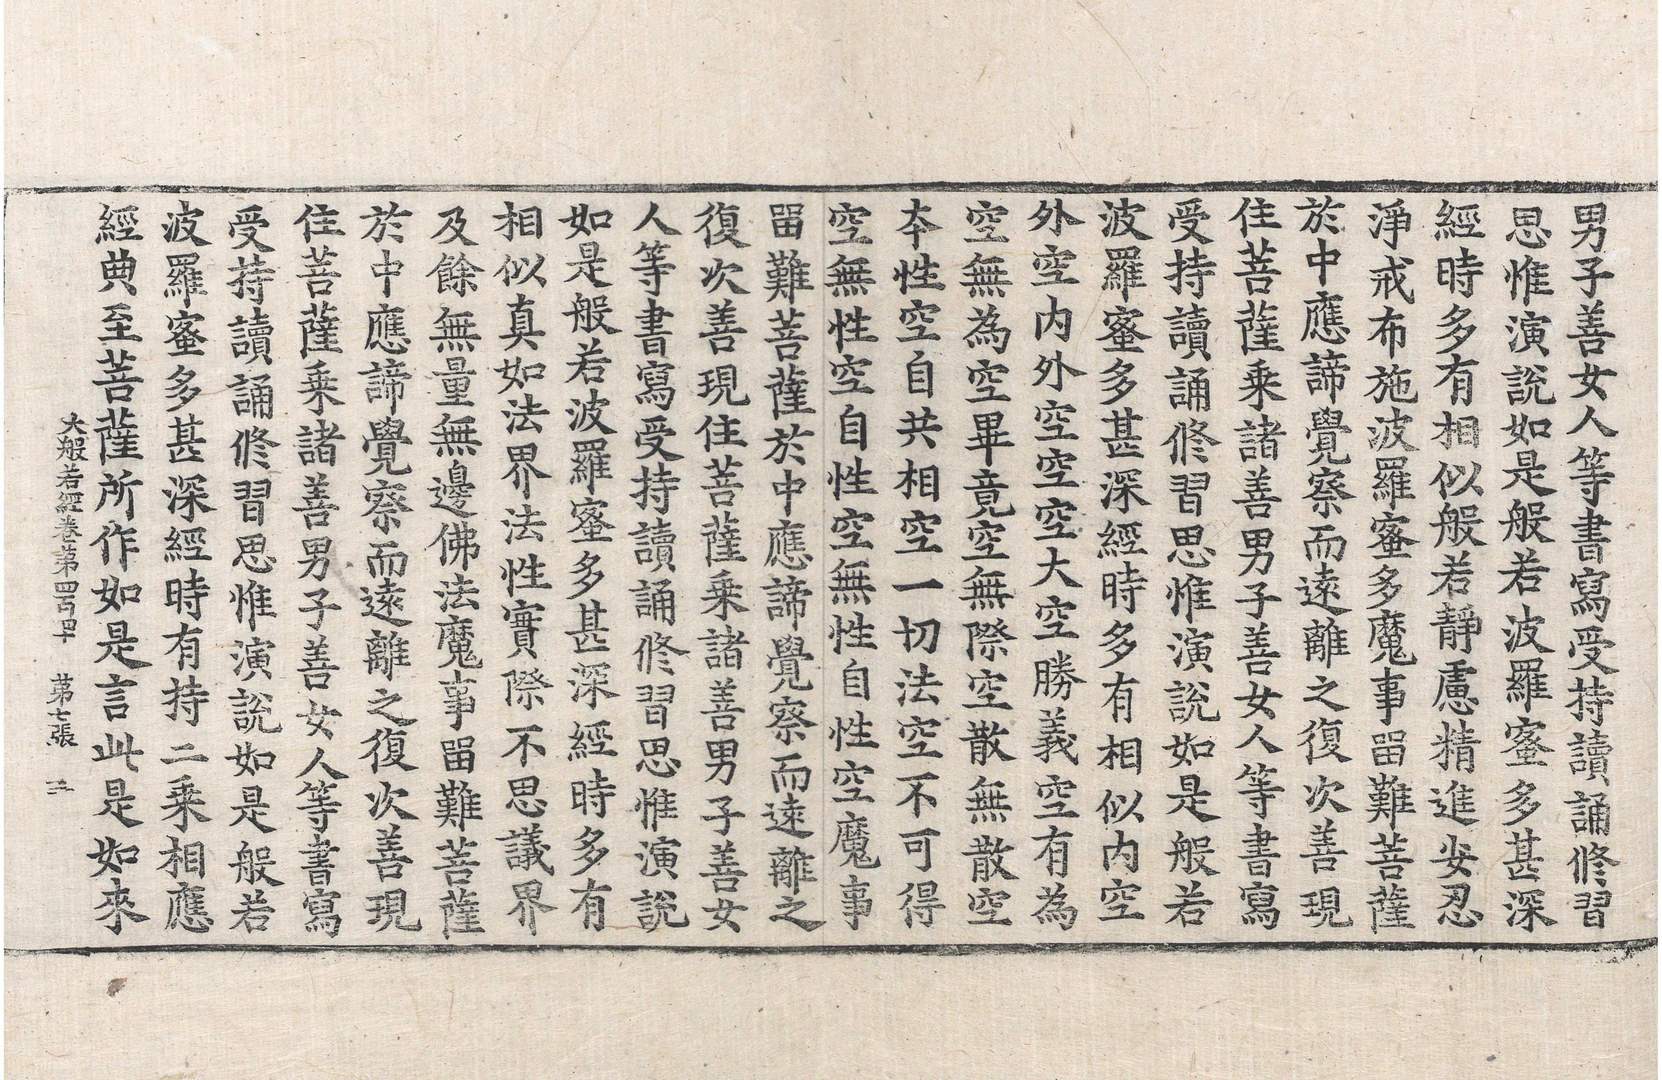 男子善女人等書寫受持讀誦修習
思惟演說如是般若波羅蜜多甚深
經時多有相似般若靜慮精進安忍
淨戒布施波羅蜜多魔事留難菩薩
於中應諦覺察而遠離之復次善現
住菩薩乘諸善男子善女人等書寫
受持讀誦修習思惟演說如是般若
波羅蜜多甚深經時多有相似內空
外空內外空空空大空勝義空有為
空無為空畢竟空無際空散無散空
本性空自共相空一切法空不可得
空無性空自性空無性自性空魔事
留難菩薩於中應諦覺察而遠離之
復次善現住菩薩乘諸善男子善女
人等書寫受持讀誦修習思惟演說
如是般若波羅蜜多甚深經時多有
相似真如法界法性實際不思議界
及餘無量無邊佛法魔事留難菩薩
於中應諦覺察而遠離之復次善現
住菩薩乘諸善男子善女人等書寫
受持讀誦修習思惟演說如是般若
波羅蜜多甚深經時有持二乘相應
經典至菩薩所作如是言此是如來
大般若經卷第四百四十 第七張